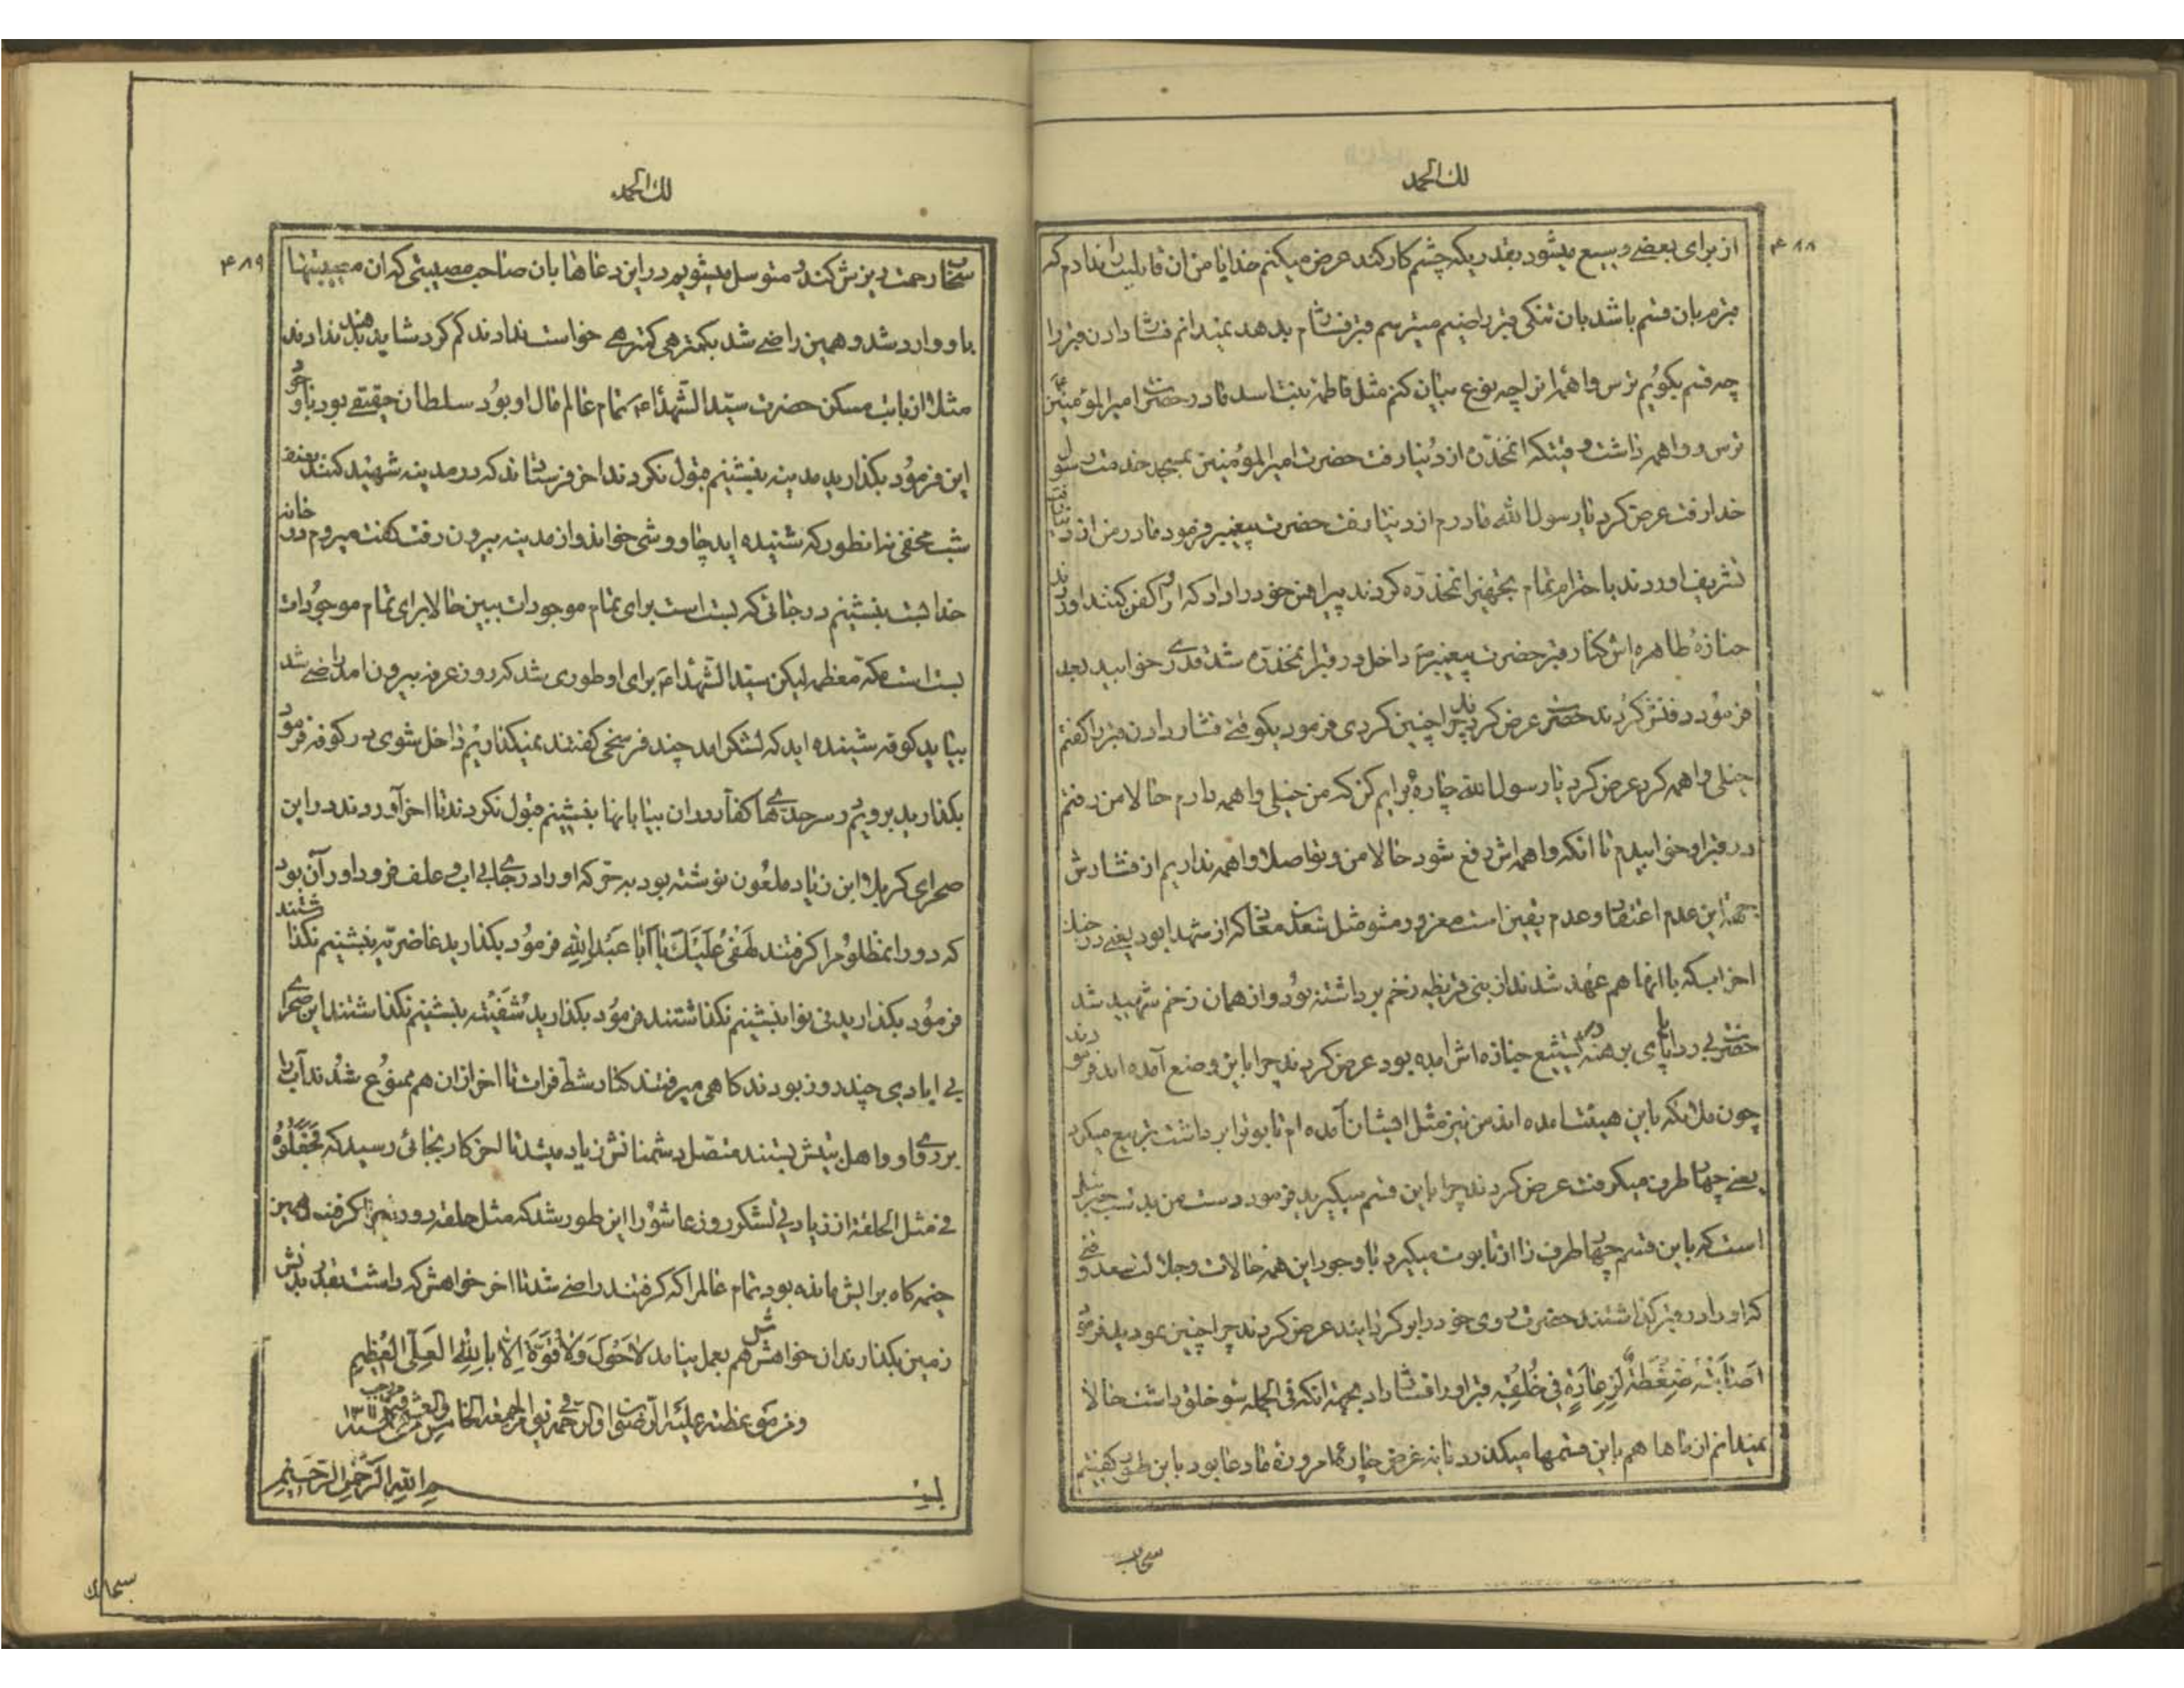 لك الحمد
۴۸۸
از برای بعضی وسیع میشود بقدریکه چشم کار کند عرض میکنم خدایا من ان قابلیت را ندارم که
قبرم بان قسم باشد بان تنگی قبر راضیم میترسم قبر فشارم بدهد نمیدانم فشار دادن قبر را
چه قسم بگویم ترس واهمه انرا چه نوع بیان کنم مثل فاطمه بنت اسد مادر حضرت امیر المؤمنین
ترس و واهمه داشت وقتیکه انمخدّره از دنیا رفت حضرت امیر المؤمنین بمسجد خدمت رسول
خدا رفت عرض کرد یا رسول الله مادرم از دنیا رفت حضرت پیغمبر فرمود مادر من از دنیا رفت
تشریف اوردند با احترام تمام تجهیز انمخدّره کردند پیراهن خود را داد که او را کفن کنند اوردند
جنازهٔ طاهره اش کنار قبر حضرت پیغمبر ص داخل در قبر انمخدّره شد قدری خوابید بعد
فرمود دفنش کردند حضرت عرض کردند چرا چنین کردی فرمود یکوقتی فشار دادن قبر را گفتم
خیلی واهمه کرد عرض کرد یا رسول الله چارهٔ برایم کن که من خیلی واهمه دارم حالا من رفتم
در قبر او خوابیدم تا انکه واهمه اش رفع شود حالا من و تو اصلا واهمه نداریم از فشارش
بجهة این عدم اعتقاد و عدم یقین است مغرور مشو مثل سعد بن معاذ که از شهدا بود یعنی در جنك
احزاب که با انها هم عهد شدند از بنی قریظه زخم برداشته بود و از همان زخم شهید شد
حضرت بی ردا پای برهنه در تشییع جنازه اش امده بود عرض کردند چرا باین وضع آمده اید فرمودند
چون ملائکه باین هیئت امده اند من نیز مثل ایشان آمده ام تابوت را برداشت تربیع میکرد
یعنی چهار طرف میگرفت عرض کردند چرا باین قسم میگیرید فرمود دست من بدست جبرئیل
است که باین قسم چهار طرف را از تابوت میگیرد با وجود این همه حالات و جلالت سعد وقتی
که او را در قبر گذاشتند حضرت روی خود را بر گردانیدند عرض کردند چرا چنین نمودید فرمود
اَصابَتْهُ ضَغْطَةٌ لِزِعارَةٍ فی خُلُقِهِ قبر او را فشار داد بجهة انکه فی الجمله سوء خلق داشت حالا
نمیدانم از ماها هم باین قسمها میگذرد یا نه غرض چارهٔ امروزهٔ ما دعا بود باین طور که گفتیم
سحاب
لك الحمد
۴۸۹
سحاب رحمت ریزش کند و متوسل میشویم در این دعاها بان صاحب مصیبتی که ان مصیبتها
باو وارد شد و همین راضی شد بکمتر هی کمتر هی خواست ندادند کم کرد شاید بدهند ندادند
مثلا از بابت مسکن حضرت سیّد الشهداء ع تمام عالم مال او بود سلطان حقیقی بود با وجود
این فرمود بگذارید مدینه بنشینم قبول نکردند اخر فرستادند که در مدینه شهید کنند بعد
شب مخفی نه انطور که شنیده اید چاووشی خواند و از مدینه بیرون رفت گفت میروم در خانه
خدا بست بنشینم در جائی که بست است برای تمام موجودات ببین حالا برای تمام موجودات
بست است مکه معظمه لیکن سیّد الشّهداء ع برای او طوری شد که روز عرفه بیرون امد راضی شد
بیاید کوفه شنیده اید که لشکر امد چند فرسخی گفتند نمیگذاریم داخل شوی در کوفه فرمود
بگذارید برویم در سرحدّی ها کفار در ان بیابانها بنشینم قبول نکردند تا اخر آوردند در این
صحرای کربلا ابن زیاد ملعون نوشته بود بحر که او را در جای بی اب و علف فرود اور آن بود
که دور انمظلوم را گرفتند لَهْفی عَلَیْكَ یا اَبا عَبْدِ اللهِ فرمود بگذارید غاضریه بنشینم نگذاشتند
فرمود بگذارید نی نوا بنشینم نگذاشتند فرمود بگذارید شُفَیّه بنشینم نگذاشتند این صحرای
بی ابادی چند روز بودند گاهی میرفتند کنار شط فرات تا اخر از ان هم ممنوع شدند آب را
بروی او و اهل بیتش بستند متصل دشمنانش زیاد میشد تا اخر کار بجائی رسید که فجعلوه
فی مثل الحلقة از زیادی لشکر روز عاشورا این طور شد که مثل حلقه دورش را گرفتند همین
خیمه گاه برایش مانده بود تمام عالم را که گرفتند راضی شد تا اخر خواهش که داشت بقدر بدنش
زمین بگذارند ان خواهشش هم بعمل نیامد لاحَوْلَ وَلاقُوَّةَ اِلاّ بِاللهِ العَلِیِّ العَظیمِ
و من موعظته علیه الرّضوان و الرّحمة فی یوم الجمعة الخامس و العشرین من رجب سنه ۱۳۰۱
بسم الله الرّحمن الرّحیم
سبحانك